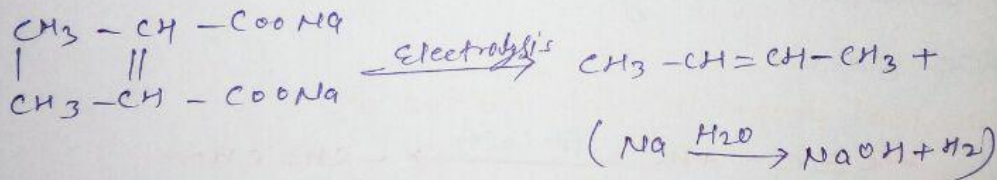 CH3 - CH - COO Na
| ||
CH3 - CH - COONa
Electrolysis → CH3 - CH = CH - CH3 +
( Na H2O → NaOH + H2 )